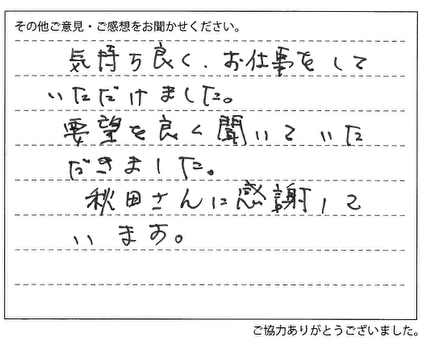 その他ご意見・ご感想をお聞かせください。
気持ち良く、お仕事をして
いただけました。
要望を良く聞いていた
だきました。
秋田さんに感謝して
います。
ご協力ありがとうございました。